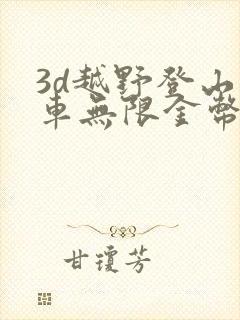 3d越野登山
車無限金幣
甘瓊芳